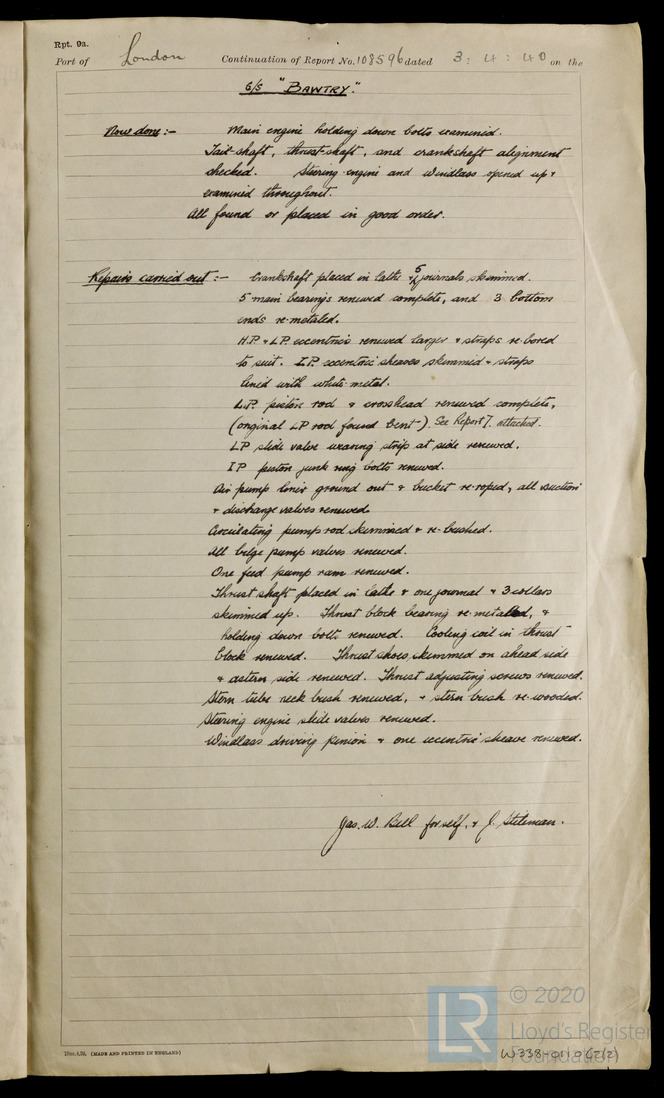 Rpt. 9a.
Port of London Continuation of Report No. 108596 dated 3 : 4 : 40 on the
S/S "BAWTRY".
Now done :- Main engine holding down bolts examined.
Tail-shaft, thrust-shaft, and crankshaft alignment
checked. Steering engine and Windlass opened up &
examined throughout.
All found or placed in good order.
Repairs carried out :- Crankshaft placed in lathe & 5 journals skimmed.
5 main bearings renewed complete, and 3 bottom
ends re-metaled.
H.P. & L.P. eccentrics renewed larger & straps re-bored
to suit. I.P. eccentric sheaves skimmed & straps
lined with white-metal.
L.P. piston rod & crosshead renewed complete,
(original LP rod found bent-). See Report 7. attached.
LP slide valve wearing strip at side renewed.
IP piston junk ring bolts renewed.
Air pump liner ground out & bucket re-roped, all suction
& discharge valves renewed.
Circulating pump rod skimmed & re-bushed.
All bilge pump valves renewed.
One feed pump ram renewed.
Thrust shaft placed in lathe & one journal & 3 collars
skimmed up. Thrust block bearing re-metalled, &
holding down bolts renewed. Cooling coil in thrust
block renewed. Thrust shoes skimmed on ahead side
& astern side renewed. Thrust adjusting screws renewed.
Stern tube neck bush renewed, & stern bush re-wooded.
Steering engine slide valves renewed.
Windlass driving pinion & one eccentric sheave renewed.
Jas. W. Bell for self, & J. Stileman.
(MADE AND PRINTED IN ENGLAND)
LR
© 2020
Lloyd's Register
Foundation
W338-0110 (2/2)